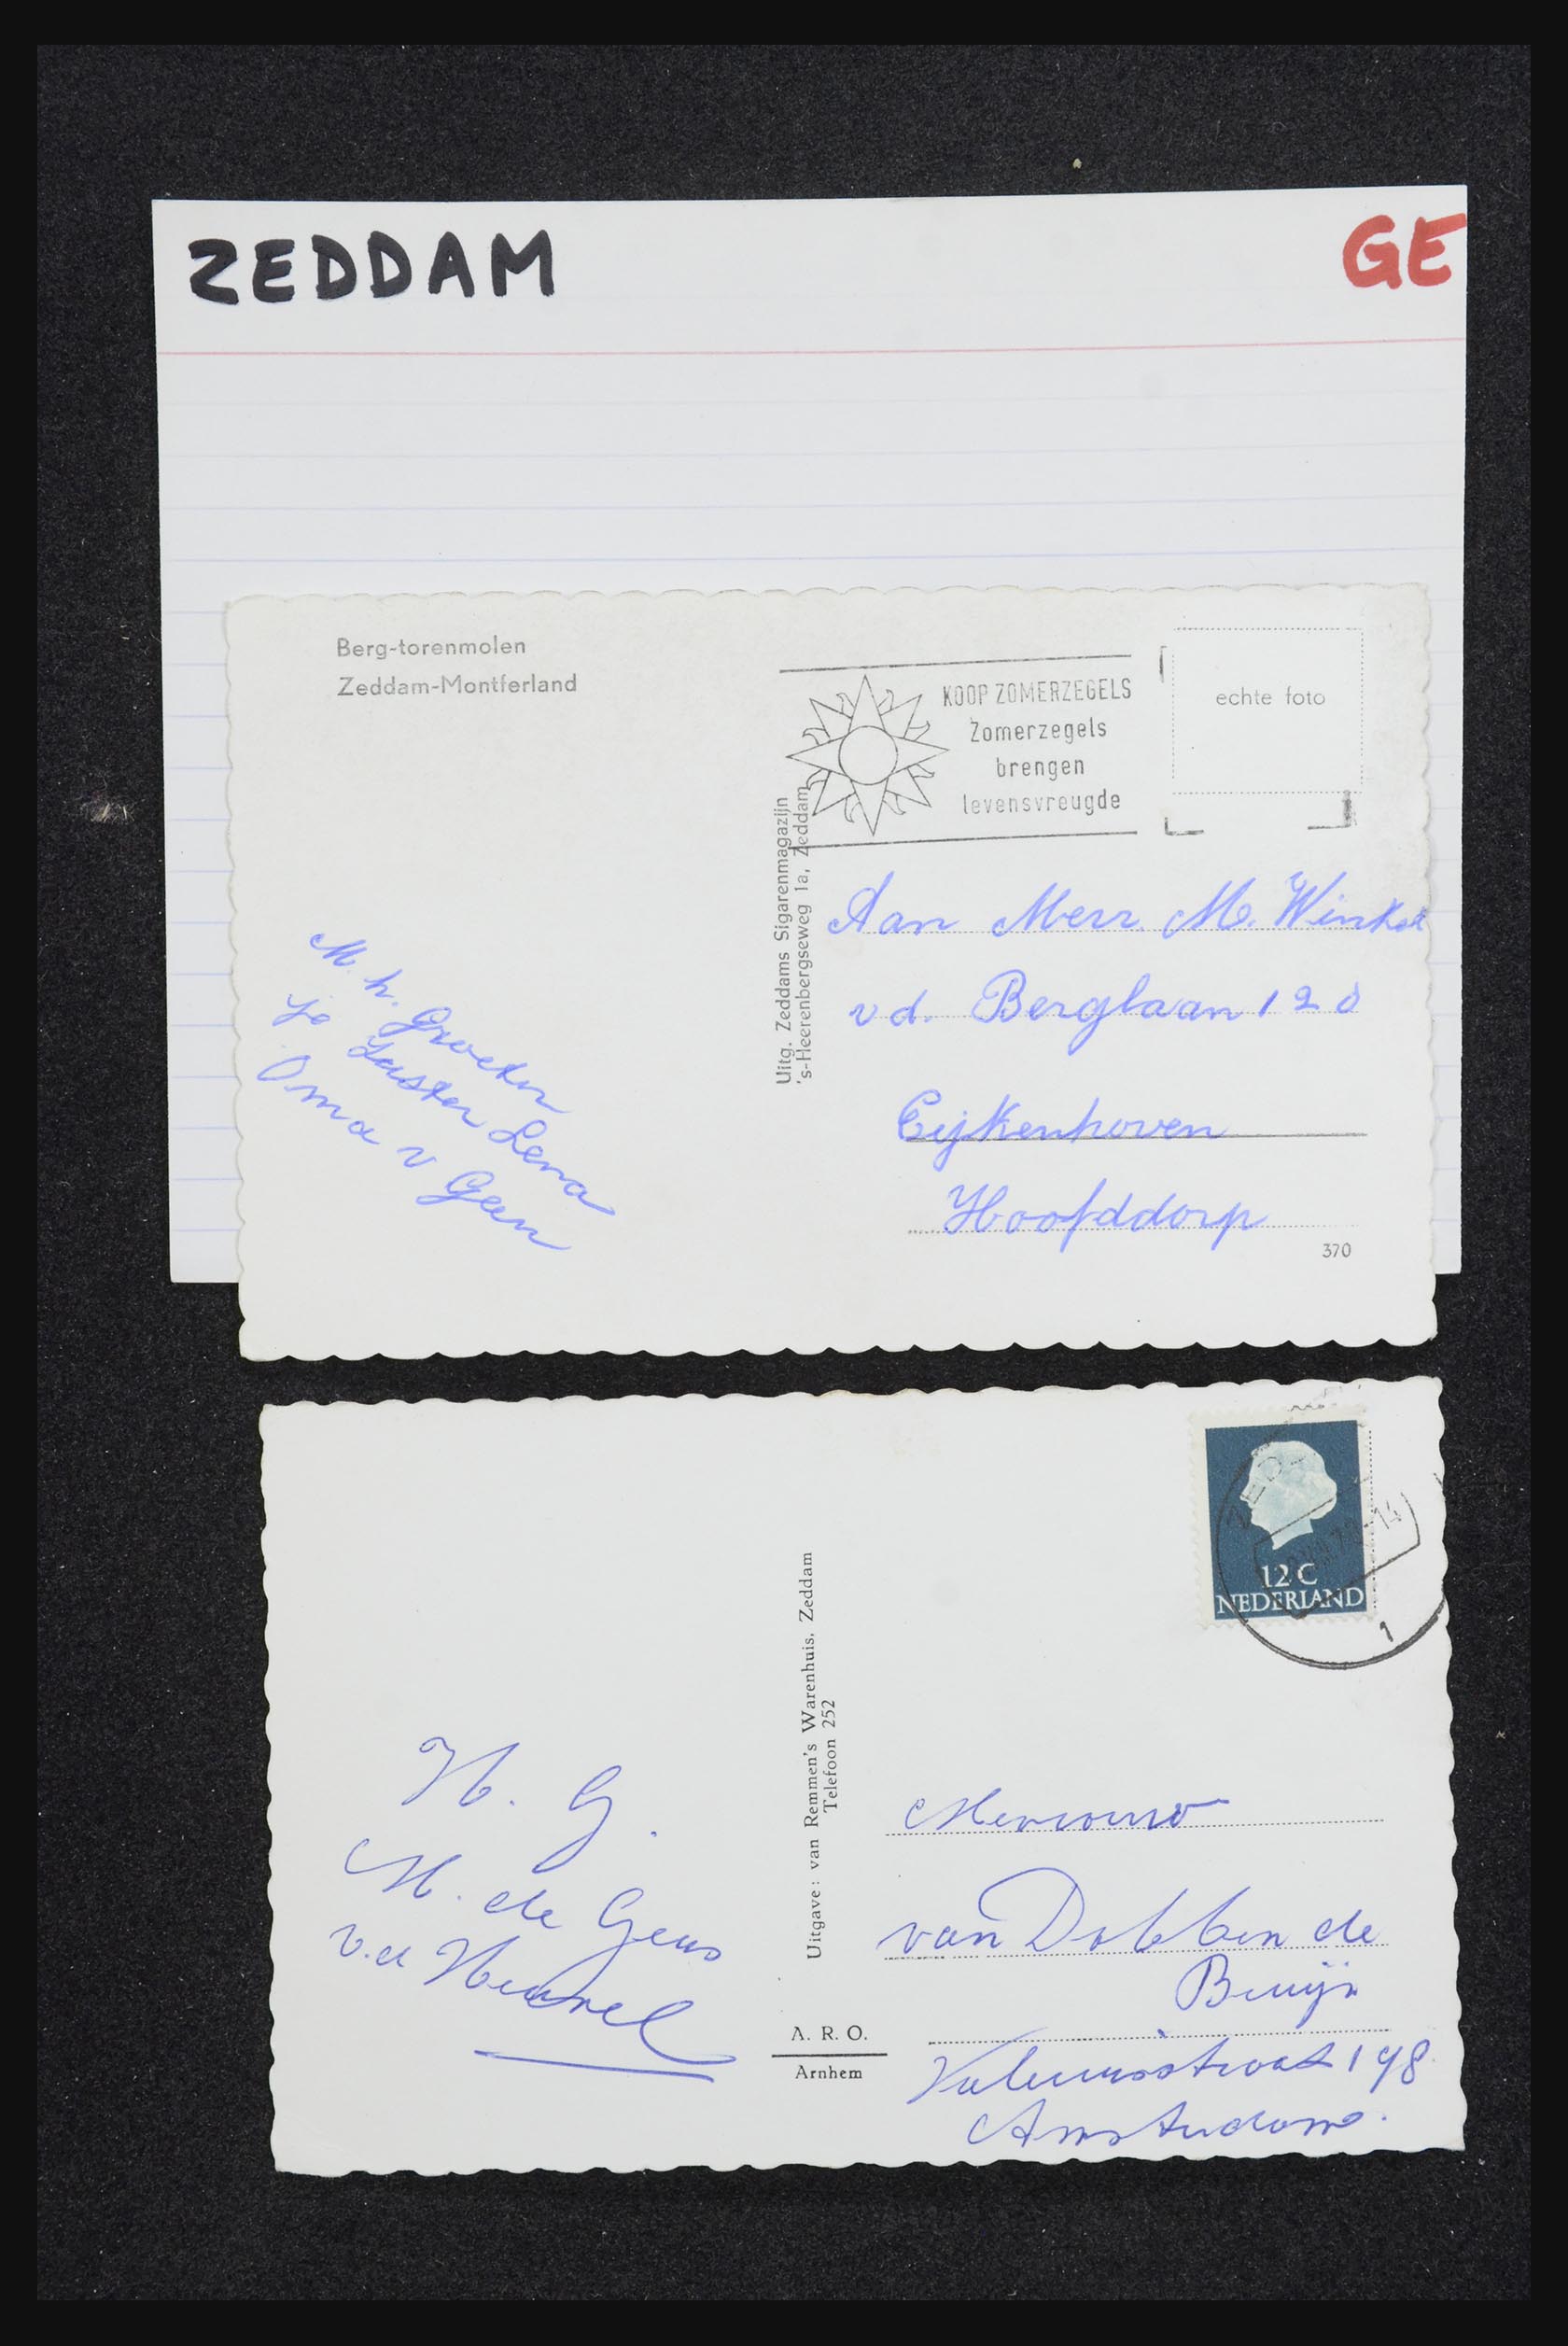 ZEDDAM
GE
Berg-torenmolen
Zeddam-Montferland
KOOP ZOMERZEGELS
Zomerzegels
brengen
levensvreugde
echte foto
Uitg. Zeddams Sigarenmagazijn
's-Heerenbergseweg 1a, Zeddam
M. h. Groeten
Je Zuster Lena
Oma v Geen
Aan Mevr. M. Winkel
v d. Berglaan 120
Eijkenhoven
Hoofddorp
370
12 C
NEDERLAND
1
Uitgave: van Remmen's Warenhuis, Zeddam
Telefoon 252
H. G.
M. de Geus
v.d Heuvel
A. R. O.
Arnhem
Mevrouw
van Dobben de
Bruijn
198
Amsterdam.